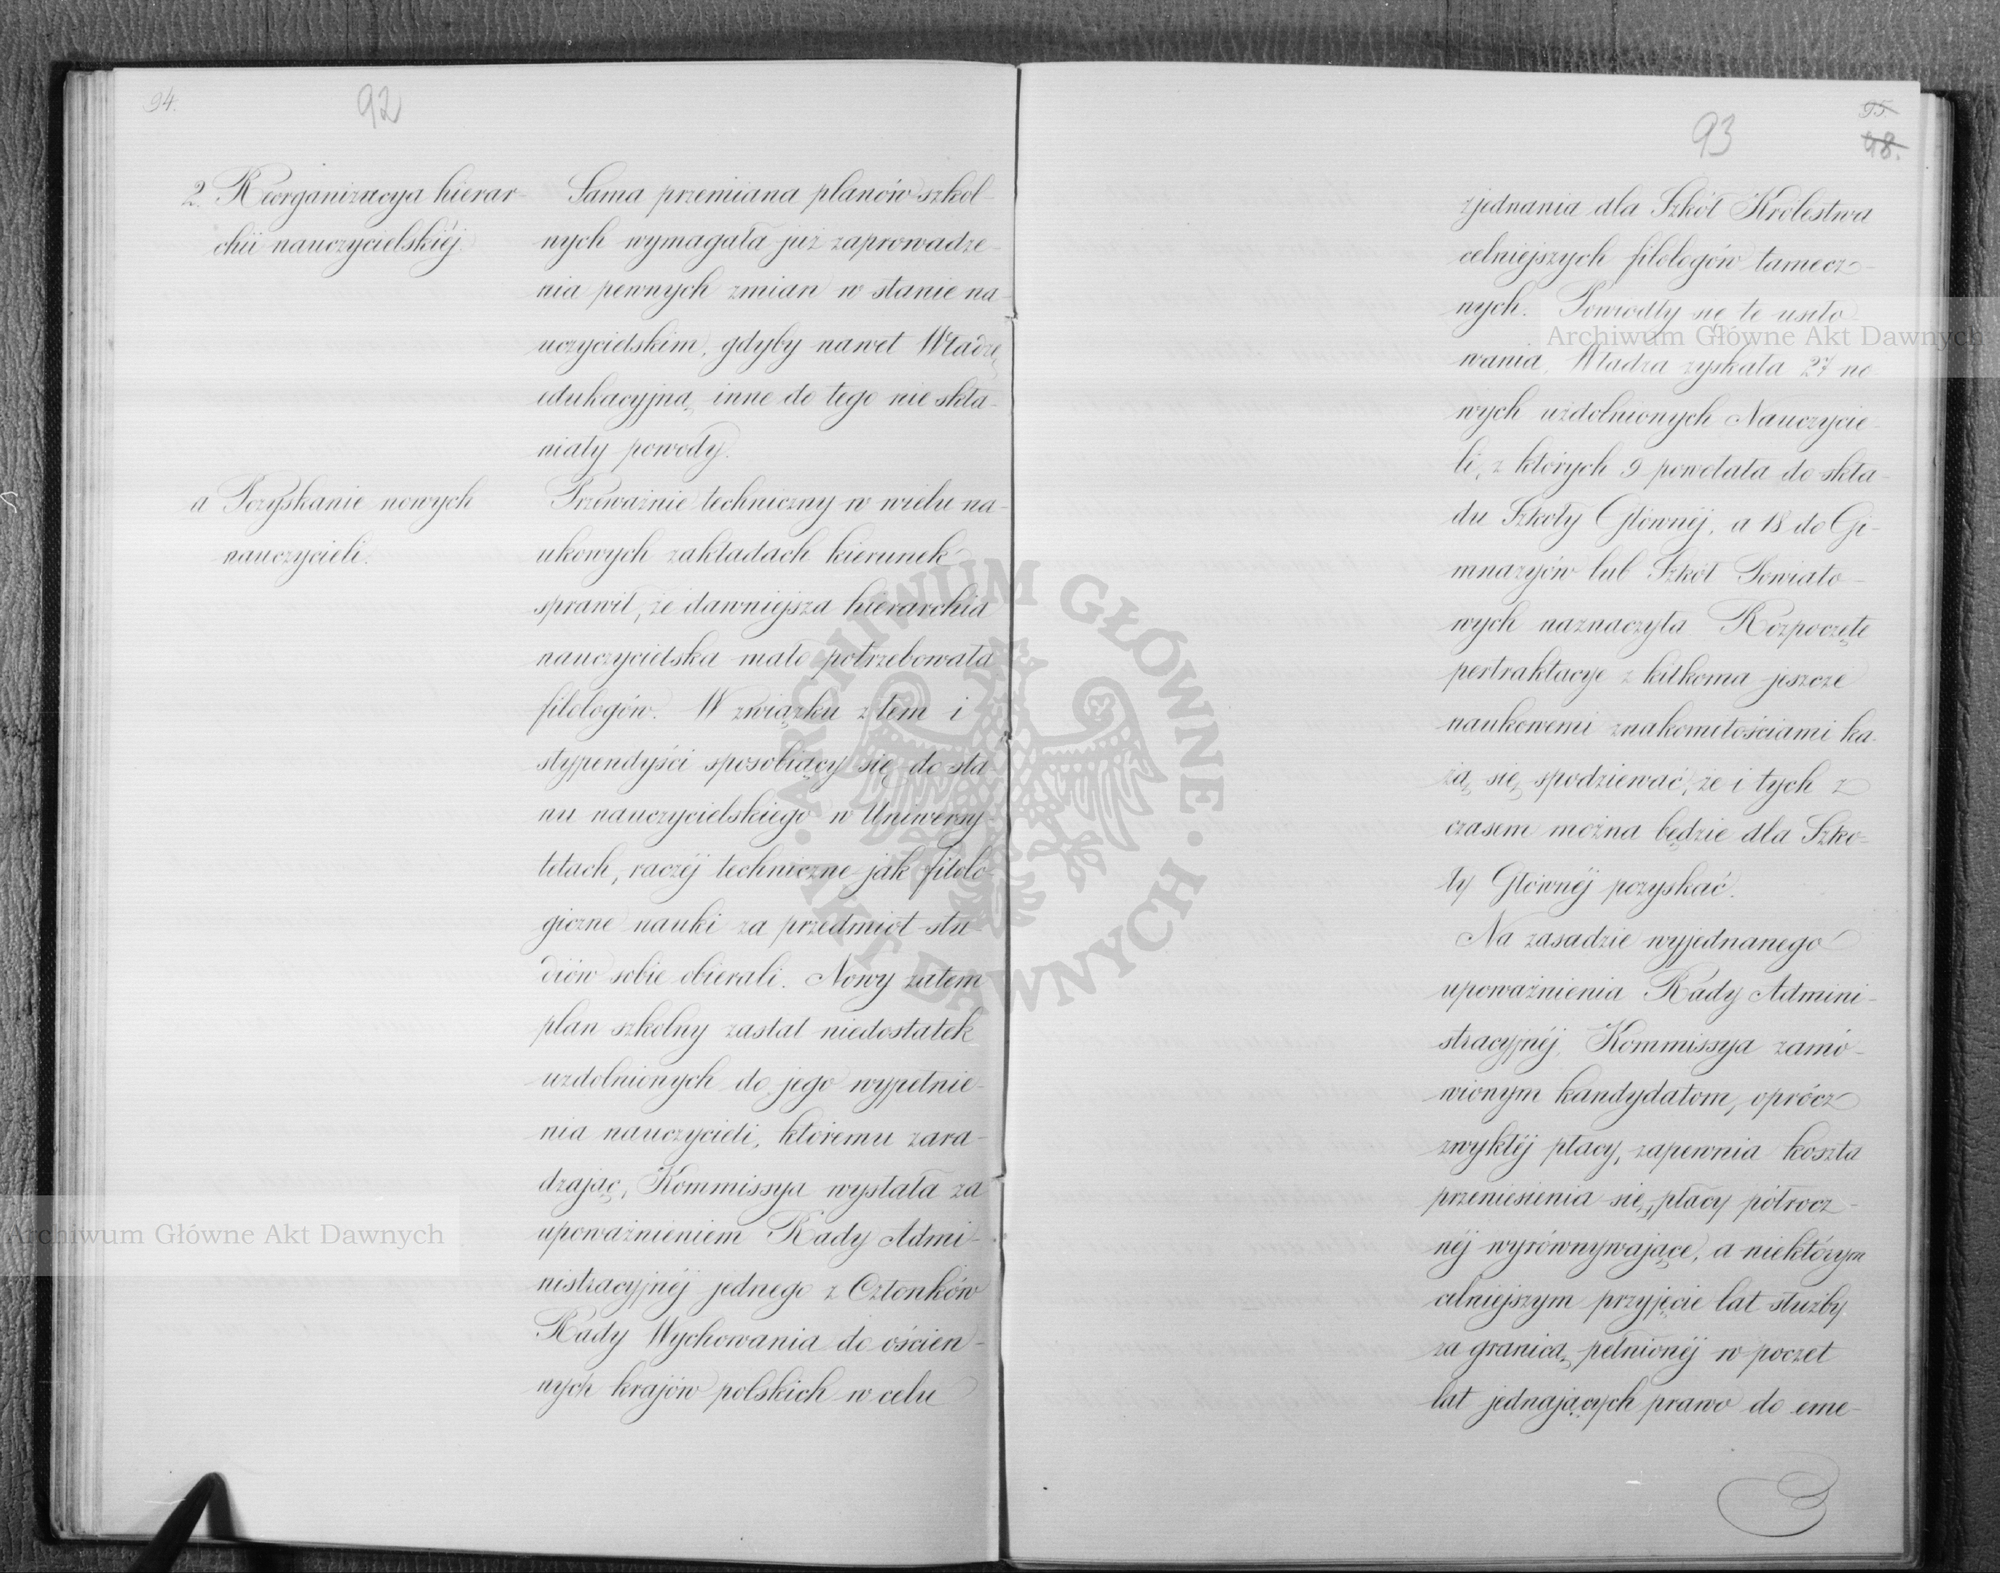 94.
92
2. Reorganizacya hierar-
chii nauczycielskiéj
Sama przemiana planów szkol-
nych wymagała już zaprowadze-
nia pewnych zmian w stanie na-
uczycielskim, gdyby nawet Władzę
edukacyjną inne do tego nie skła-
niały powody.
a Pozyskanie nowych
nauczycieli.
Przeważnie techniczny w wielu na-
ukowych zakładach kierunek
sprawił, że dawniejsza hierarchia
nauczycielska mało potrzebowała
filologów. W związku z tem i
stypendyści sposobiący się do sta
nu nauczycielskiego w Uniwersy
tetach, raczéj techniczne jak filolo-
giczne nauki za przedmiot stu-
diów sobie obierali. Nowy zatem
plan szkolny zastał niedostatek
uzdolnionych do jego wypełnie-
nia nauczycieli, któremu zara-
dzając, Kommissya wysłała za
upoważnieniem Rady Admi-
nistracyjnéj jednego z Członków
Rady Wychowania do ościen-
nych krajów polskich w celu
95.
48.
93
zjednania dla Szkół Królestwa
celniejszych filologów tamecz-
nych. Powiodły się te usiło-
wania, Władza zyskała 27 no-
wych uzdolnionych Nauczycie-
li, z których 9 powołała do skła-
du Szkoły Głównéj, a 18 do Gi-
mnazyów lub Szkół Powiato-
wych naznaczyła Rozpoczęte
pertraktacye z kilkoma jeszcze
naukowemi znakomitościami ka-
żą się spodziewać, że i tych z
czasem można będzie dla Szko-
ły Głównéj pozyskać.
Na zasadzie wyjednanego
upoważnienia Rady Admini-
stracyjnéj, Kommissya zamó-
wionym kandydatom, oprócz
zwykłéj płacy, zapewnia koszta
przeniesienia się, płacy półrocz-
néj wyrównywające, a niektórym
celniejszym przyjęcie lat służby
za granicą pełnionéj w poczet
lat jednających prawo do eme-
Archiwum Główne Akt Dawnych
Archiwum Główne Akt Dawnych
ARCHIWUM GŁÓWNE · AKT DAWNYCH ·